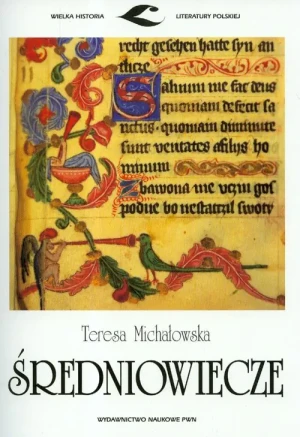 WIELKA HISTORIA LITERATURY POLSKIEJ
recht gesehen hatte syn an
tlicze
Saluum me fac deus
quoniam defecit sa
nctus · quoniam diminute
sunt veritates afilijs ho
minum
Zbawona me vczin gos
podne bo nestatczil swøty
Teresa Michałowska
ŚREDNIOWIECZE
WYDAWNICTWO NAUKOWE PWN